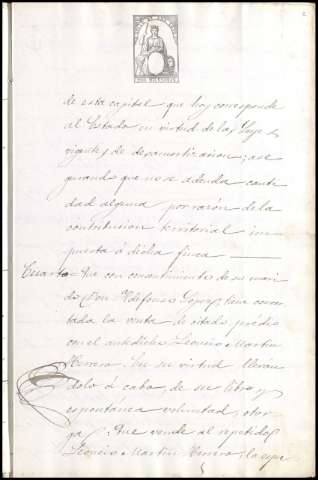 2
de esta capital que hoy corresponde
al Estado en virtud de las Leyes
vigentes de desamortizacion; ase
gurando que no se adeuda canti
dad alguna por razón de la
contribucion territorial im
puesta á dicha finca
Cuarto= Que con consentimiento de su mari
do (Don Ildefonso Lopez) tiene concer
tada la venta de citado prédio
con el antedicho Leoncio Martin
Herrero. En su virtud llevan
dolo á cabo, de su libre y
espontánea voluntad, otor
ga: Que vende al repetido
Leoncio Martin Herrero, la espre